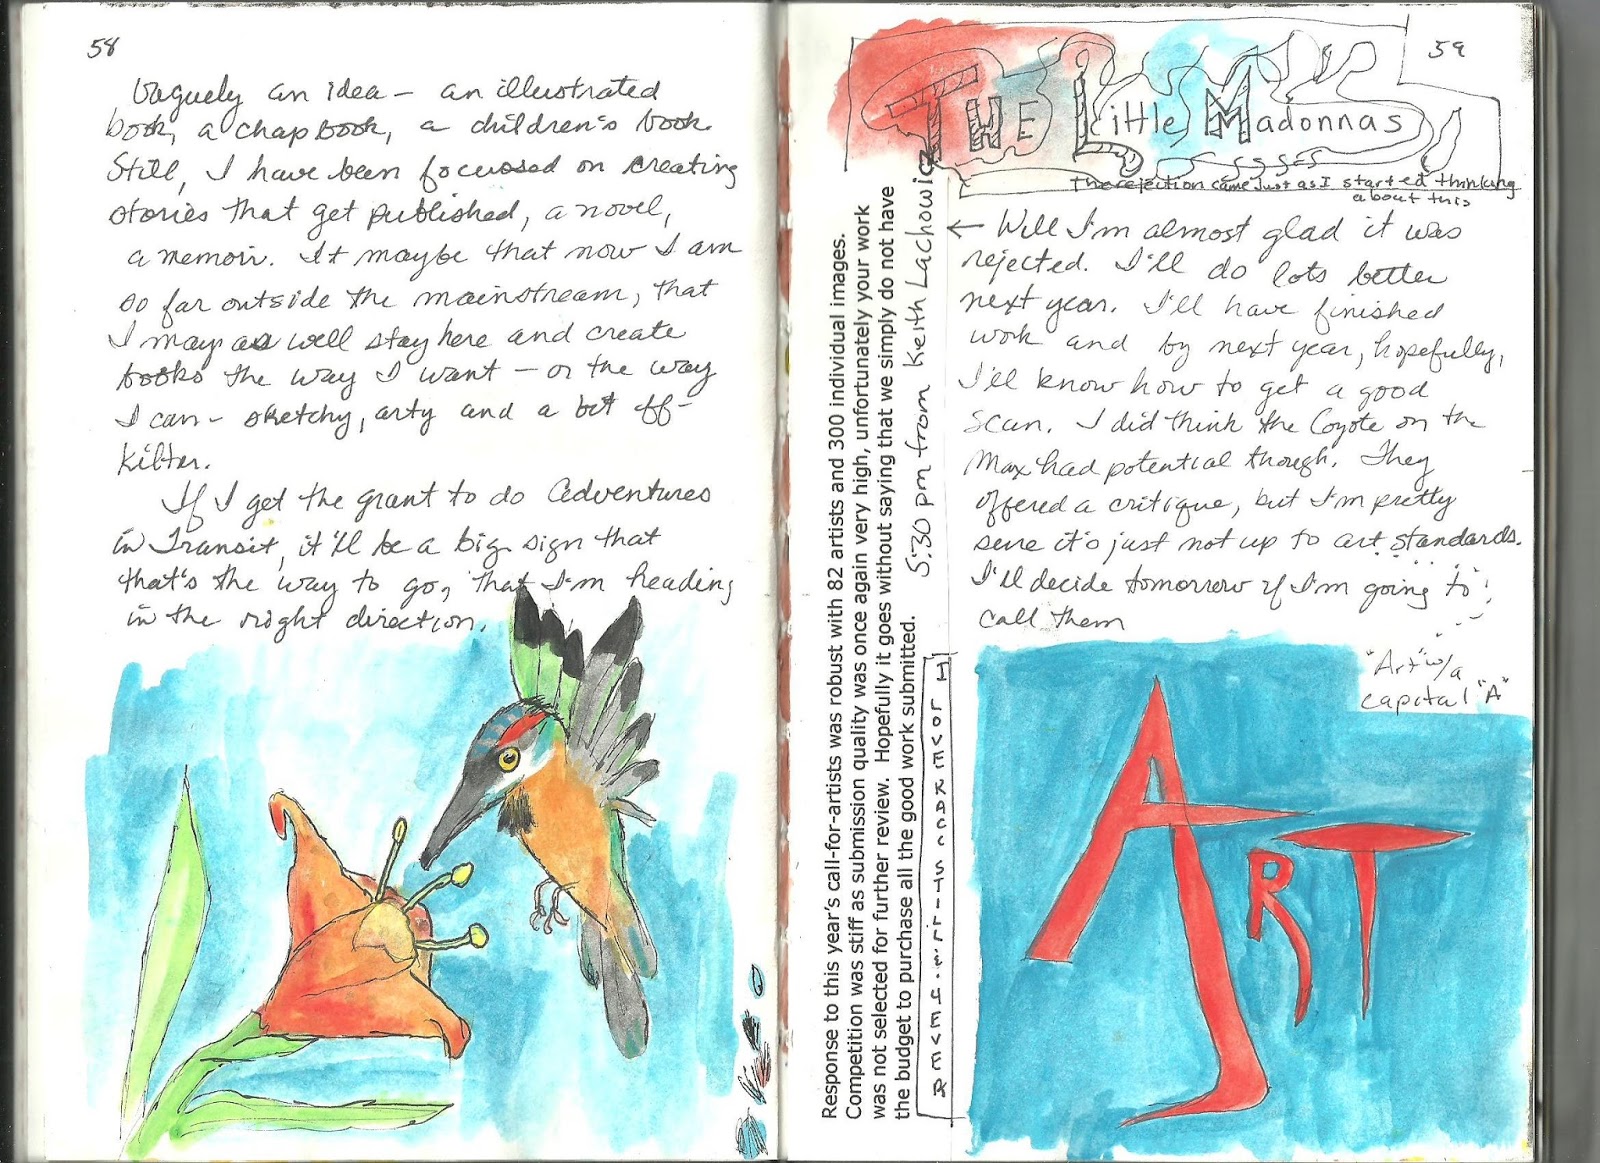 58
Vaguely an idea — an illustrated
book, a chapbook, a children's book.
Still, I have been focussed on creating
stories that get published, a novel,
a memoir. It maybe that now I am
so far outside the mainstream, that
I may as well stay here and create
books the way I want — or the way
I can - sketchy, arty and a bit off-
kilter.
If I get the grant to do Adventures
in Transit, it'll be a big sign that
that's the way to go, that I'm heading
in the right direction.
59
The Little Madonnas
The rejection came just as I started thinking
about this
Response to this year's call-for-artists was robust with 82 artists and 300 individual images.
Competition was stiff as submission quality was once again very high, unfortunately your work
was not selected for further review. Hopefully it goes without saying that we simply do not have
the budget to purchase all the good work submitted.
5:30 pm from Keith Lachowicz
I LOVE RACC STILL
← Well I'm almost glad it was
rejected. I'll do lots better
next year. I'll have finished
work and by next year, hopefully,
I'll know how to get a good
scan. I did think the Coyote on the
Max had potential though. They
offered a critique, but I'm pretty
sure it's just not up to art standards.
I'll decide tomorrow if I'm going to
call them
"Art" w/a
capital "A"
ART